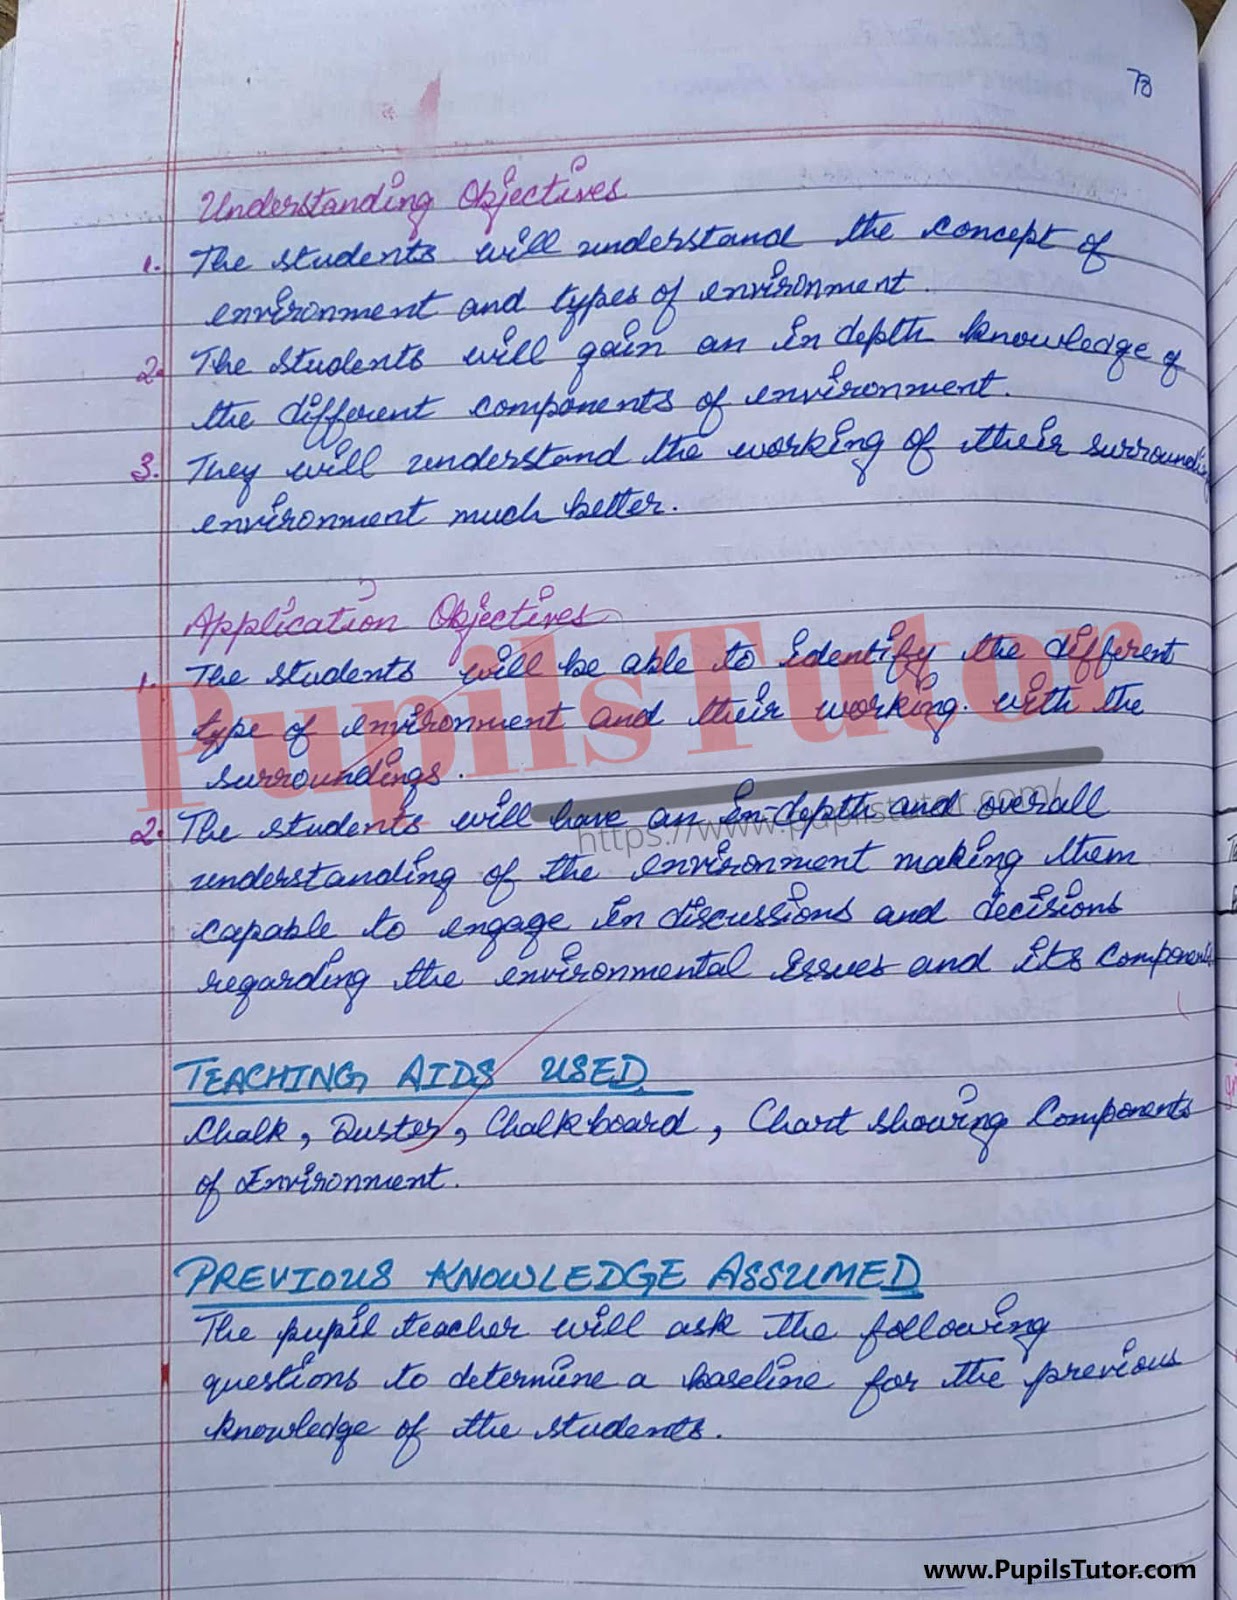 78
Understanding Objectives
1. The students will understand the concept of
environment and types of environment.
2. The students will gain an in depth knowledge of
the different components of environment.
3. They will understand the working of their surrounding
environment much better.
Application Objectives
1. The students will be able to identify the different
type of environment and their working. with the
surroundings.
2. The students will have an in-depth and overall
understanding of the environment making them
capable to engage in discussions and decisions
regarding the environmental issues and its components
PupilsTutor
https://www.pupilstutor.com/
TEACHING AIDS USED
Chalk, Duster, Chalkboard, Chart showing Components
of Environment.
PREVIOUS KNOWLEDGE ASSUMED
The pupil teacher will ask the following
questions to determine a baseline for the previous
knowledge of the students.
www.PupilsTutor.com